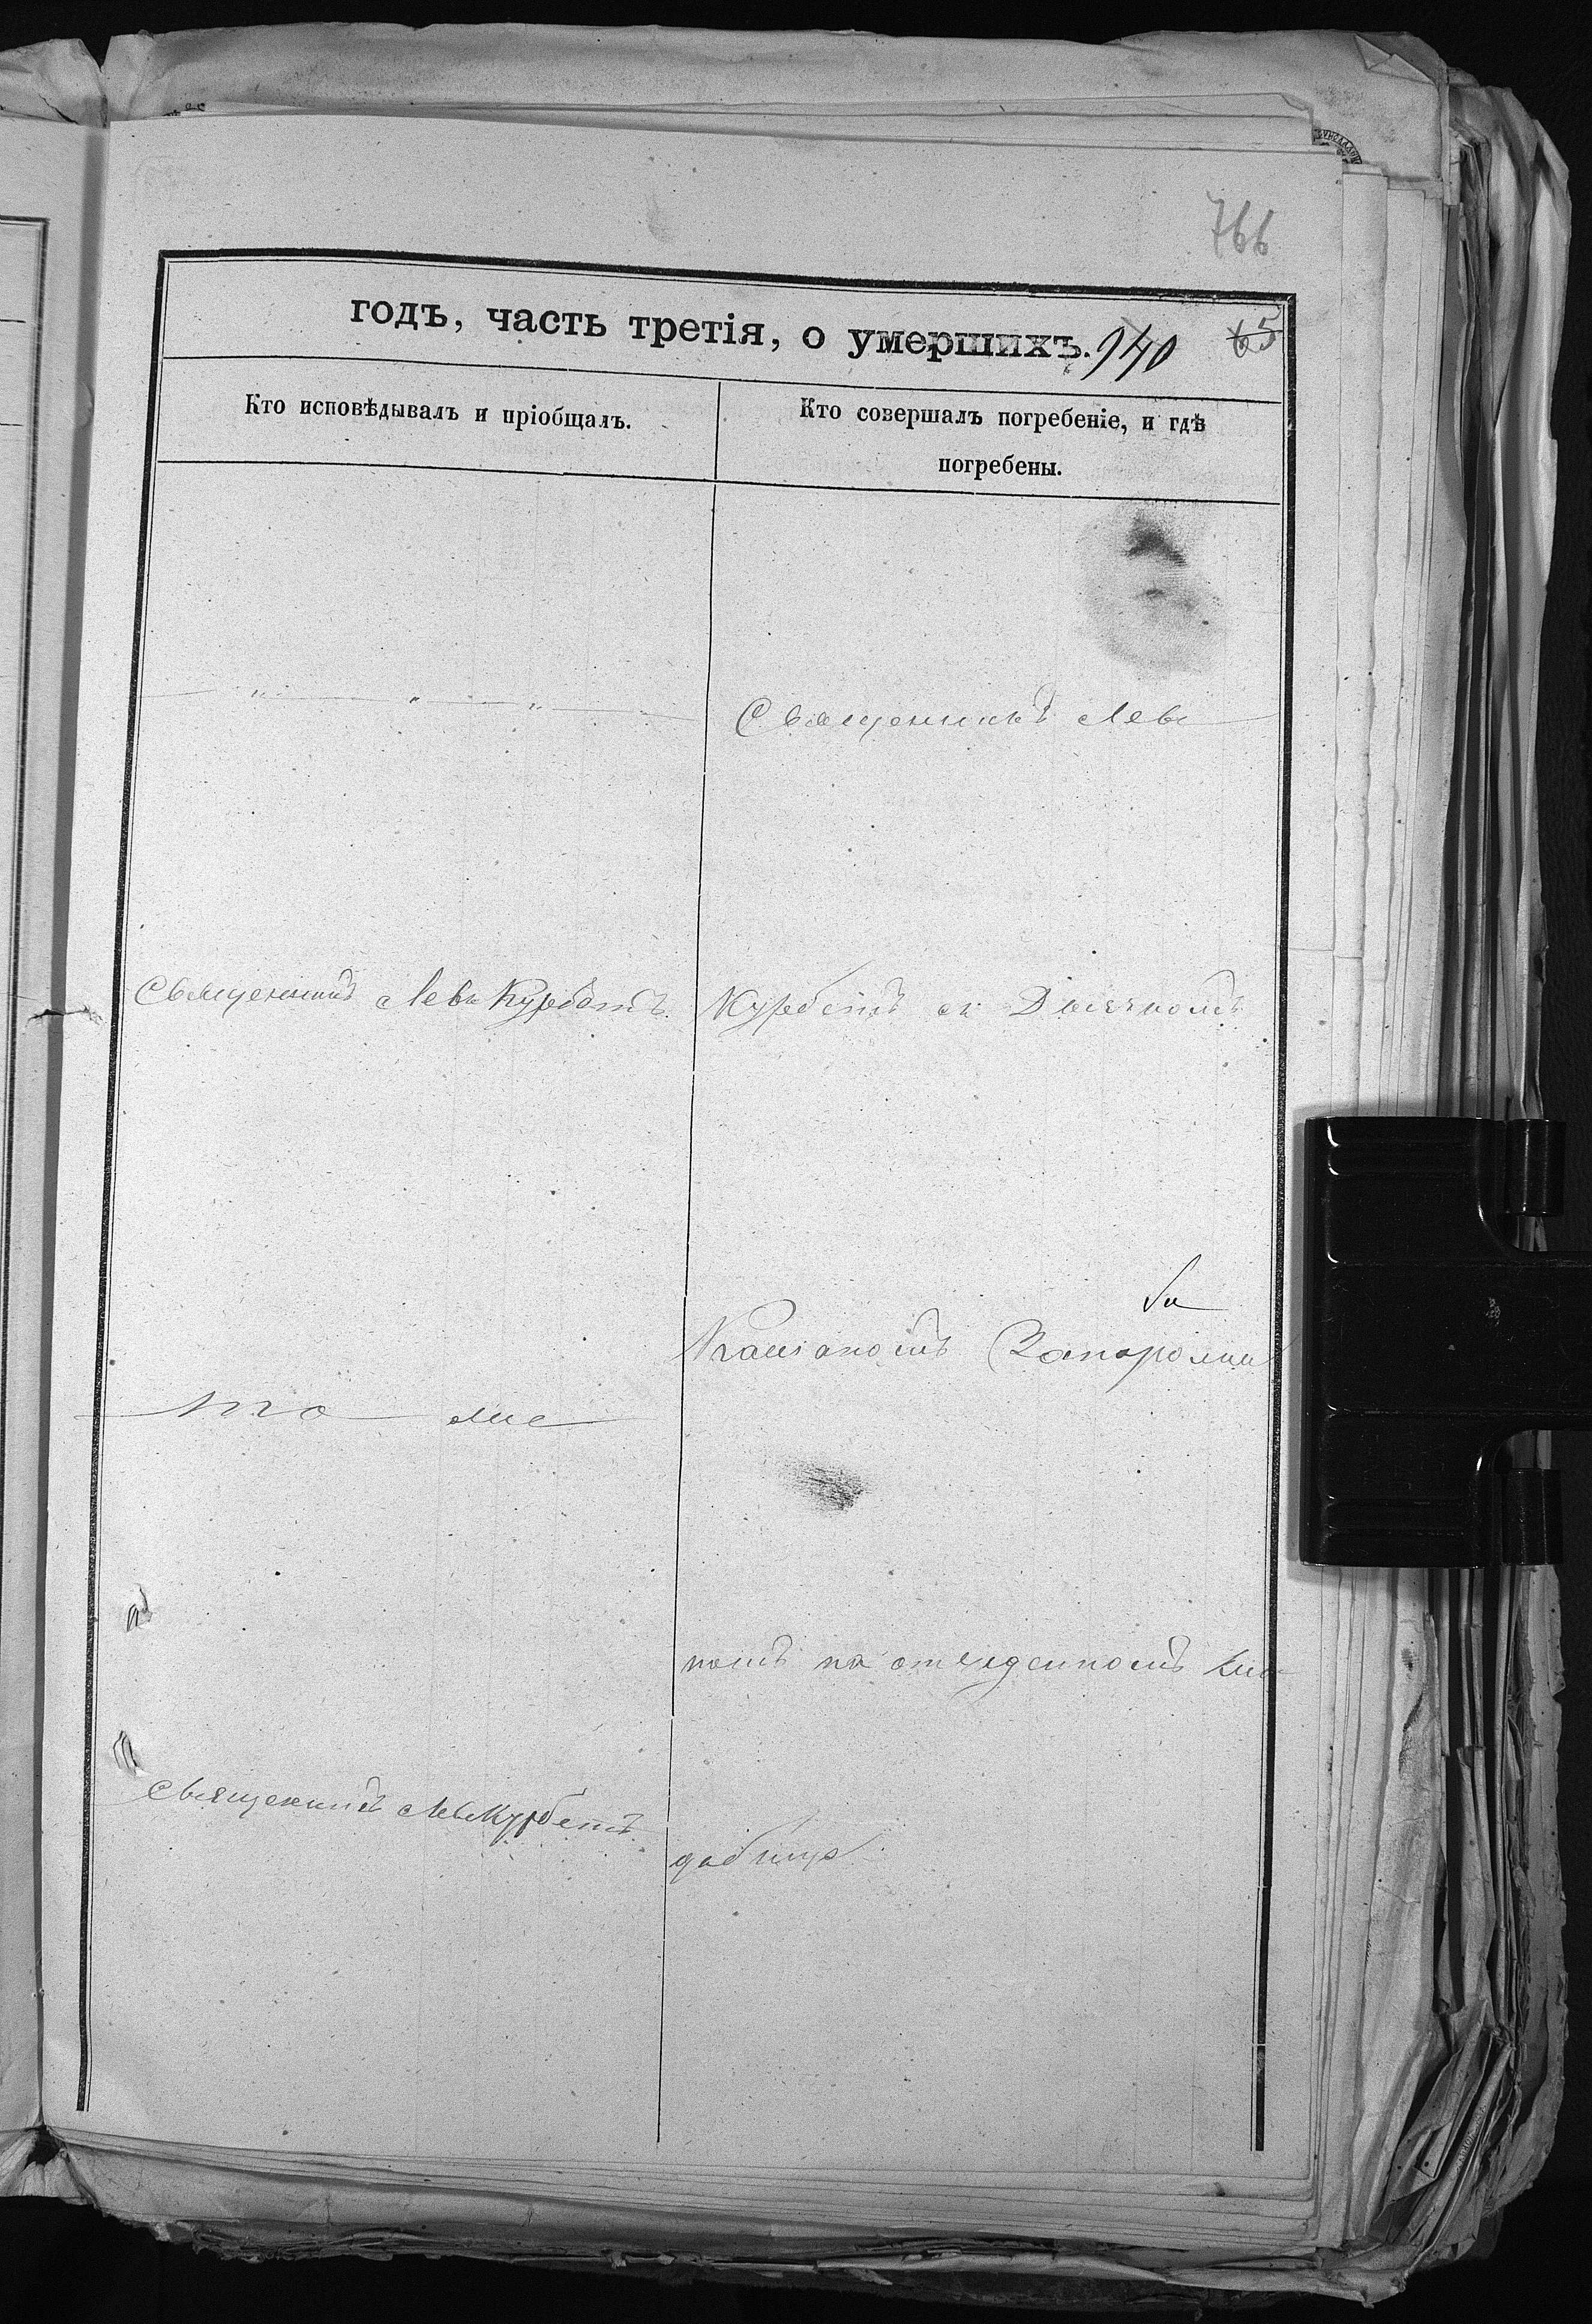 766
годъ, часть третія, о умершихъ.
940
65
Кто исповѣдывалъ и пріобщалъ.
Кто совершалъ погребеніе, и гдѣ
погребены.
Священникъ Левъ
Священникъ Левъ Курбетъ
Курбетъ съ Дьячкомъ
то же
номъ на отведенномъ кла
Священникъ Левъ Курбетъ
дбищѣ